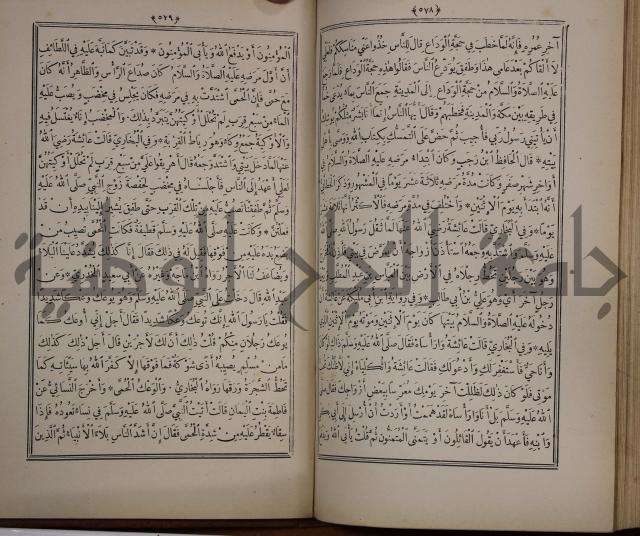 ﴿٥٧٨﴾
آخر عمره فإنه لما خطب في حجة الوداع قال للناس خذوا عني مناسككم فلعلي
لا ألقاكم بعد عامي هذا وطفق يودع الناس فقالوا هذه حجة الوداع فلما رجع
عليه الصلاة والسلام من حجة الوداع إلى المدينة جمع الناس بماء يدعى خما
في طريقه بين مكة والمدينة فخطبهم وقال أيها الناس إنما أنا بشر مثلكم يوشك
أن يأتيني رسول ربي فأجيب ثم حض على التمسك بكتاب الله ووصى بأهل
بيته * قال الحافظ ابن رجب وكان ابتداء مرضه عليه الصلاة والسلام في
أواخر شهر صفر وكانت مدة مرضه ثلاثة عشر يوما في المشهور
أنه ابتدأ به يوم الاثنين * واختلف في مدة مرضه فالأكثر أنها ثلاثة عشر
يوما * وفي البخاري قالت عائشة رضي الله عنها لما ثقل رسول الله صلى
الله عليه وسلم واشتد به وجعه استأذن أزواجه أن يمرض في بيتي فأذن له
وهو بين رجلين تخط رجلاه في الأرض بين العباس بن عبد المطلب
ورجل آخر أي وهو علي بن أبي طالب * وفي رواية
دخوله عليه الصلاة والسلام بيتها كان يوم الاثنين وموته يوم الاثنين الذي
يليه * وفي البخاري قالت عائشة وارأساه فقال صلى الله عليه وسلم ذاك لو كان
وأنا حي فأستغفر لك وأدعو لك فقالت عائشة واثكلياه إني لأظنك تحب
موتي فلو كان ذلك لظللت آخر يومك معرسا ببعض أزواجك فقال صلى
الله عليه وسلم بل أنا وارأساه لقد هممت أو أردت أن أرسل إلى أبي بكر
وابنه فأعهد أن يقول القائلون أو يتمنى المتمنون ثم قلت يأبى الله ويدفع
﴿٥٧٩﴾
المؤمنون أو يدفع الله ويأبى المؤمنون * وقد تبين كما نبه عليه في اللطائف
أن أول مرضه عليه الصلاة والسلام كان صداع الرأس والظاهر أنه كان
مع حمى فإن الحمى اشتدت به في مرضه فكان يجلس في مخضب ويصب عليه
الماء من سبع قرب لم تحلل أوكيتهن يتبرد بذلك * والمخضب إناء يغتسل فيه
والأوكية جمع وكاء وهو رباط القربة * وفي البخاري قالت عائشة رضي الله
عنها لما دخل بيتي واشتد وجعه قال أهريقوا علي من سبع قرب لم تحلل أوكيتهن
لعلي أعهد إلى الناس فأجلسناه في مخضب لحفصة زوج النبي صلى الله عليه
وسلم ثم طفقنا نصب عليه من تلك القرب حتى طفق يشير إلينا بيده أن قد
فعلتن * وكانت عليه صلى الله عليه وسلم قطيفة فكانت الحمى تصيب من
يضع يده عليه من فوقها فقيل له في ذلك فقال إنا كذلك يشدد علينا البلاء
ويضاعف لنا الأجر رواه ابن ماجه وغيره عن أبي سعيد الخدري * وعن
عبد الله قال دخلت على النبي صلى الله عليه وسلم وهو يوعك وعكا شديدا
فقلت يا رسول الله إنك توعك وعكا شديدا فقال أجل إني أوعك كما
يوعك رجلان منكم قلت ذلك أن لك لأجرين قال أجل ذلك كذلك
ما من مسلم يصيبه أذى شوكة فما فوقها إلا كفر الله بها سيئاته كما
تحط الشجرة ورقها رواه البخاري * والوعك الحمى * وأخرج النسائي عن
فاطمة بنت اليمان قالت أتيت النبي صلى الله عليه وسلم في نساء نعوده فإذا
سقاء يقطر عليه من شدة الحمى فقال إن أشد الناس بلاء الأنبياء ثم الذين
جامعة النجاح الوطنية